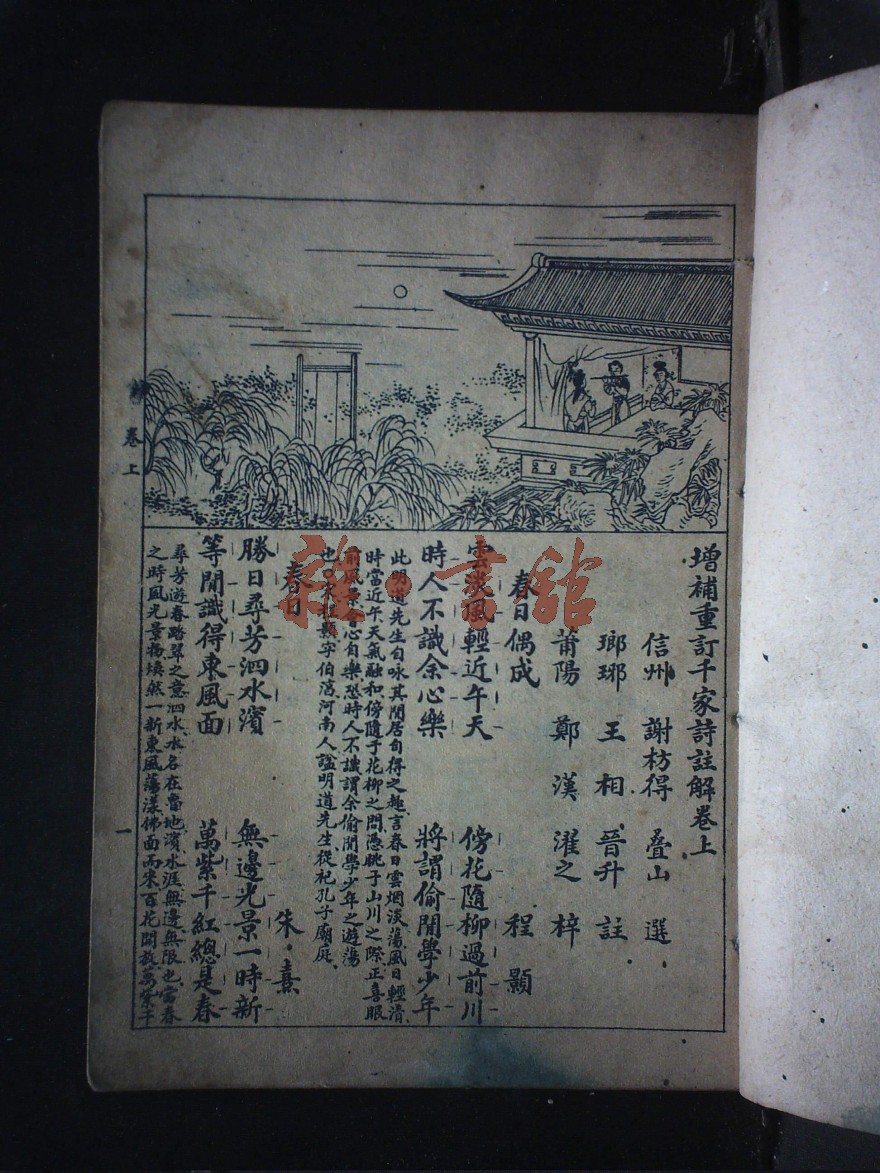 增補重訂千家詩註解卷上
信州 謝枋得 叠山 選
瑯琊 王相 晉升 註
莆陽 鄭漢 濯之 梓
春日偶成 程顥
雲淡風輕近午天 傍花隨柳過前川
時人不識余心樂 將謂偷閒學少年
此明道先生自咏其閒居自得之趣言春日雲烟淡蕩風日輕清
時當近午天氣融和傍隨于花柳之間憑眺于山川之際正喜眼
前風景會心自樂恐時人不識謂余偷閒學少年之遊蕩
也○宋程顥字伯淳河南人謚明道先生從祀孔子廟庭
春日 朱熹
勝日尋芳泗水濱 無邊光景一時新
等閒識得東風面 萬紫千紅總是春
尋芳遊春踏翠之意泗水水名在魯地濱水涯無邊無限也當春
之時風光景物煥然一新東風蕩漾拂面而來百花開放萬紫千
卷上
一
雜·書館